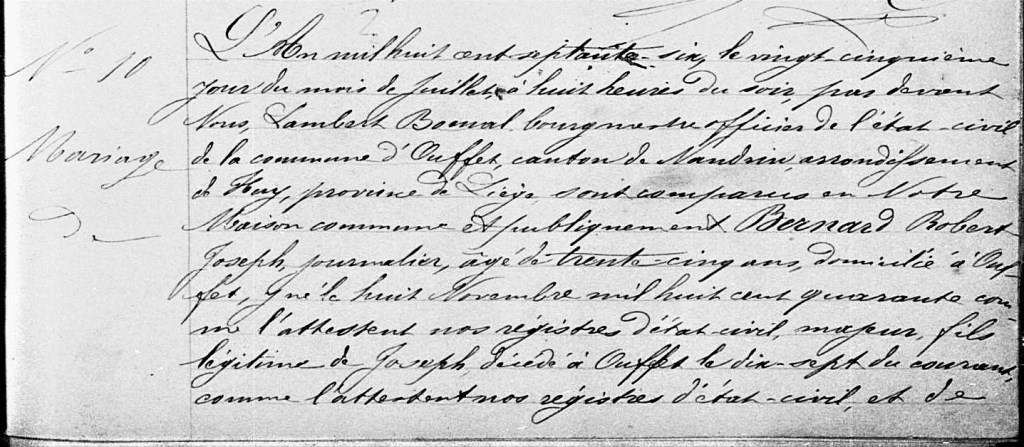 N° 10
Mariage
de
L'An mil huit cent septante-six, le vingt-cinquième
jour du mois de Juillet, à huit heures du soir, pas devant
Nous, Lambert Bomal bourgmestre officier de l'état-civil
de la commune d'Ouffet, canton de Nandrin, arrondissement
de Huy, province de Liège sont comparus en Notre
Maison commune et publiquement Bernard Robert
Joseph, journalier, âgé de trente cinq ans, domicilié à Ouf-
fet, y né le huit Novembre mil huit cent quarante com-
me l'attestent nos régistres d'état-civil, majeur, fils
légitime de Joseph, décédé à Ouffet le dix-sept du courant,
comme l'attestent nos régistres d'état-civil, et de